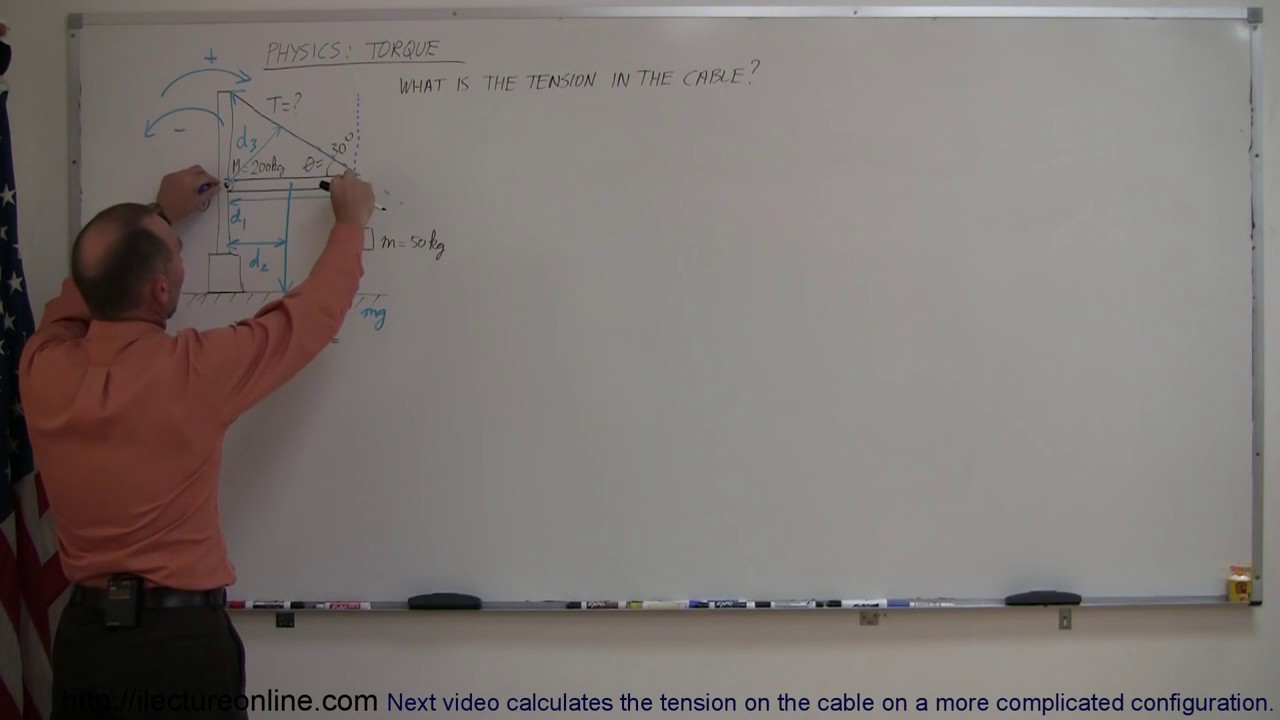 PHYSICS: TORQUE
+
WHAT IS THE TENSION IN THE CABLE?
T=?
-
d3
30°
M=200kg θ=
d1
m=50kg
d2
mg
=
http://ilectureonline.com Next video calculates the tension on the cable on a more complicated configuration.